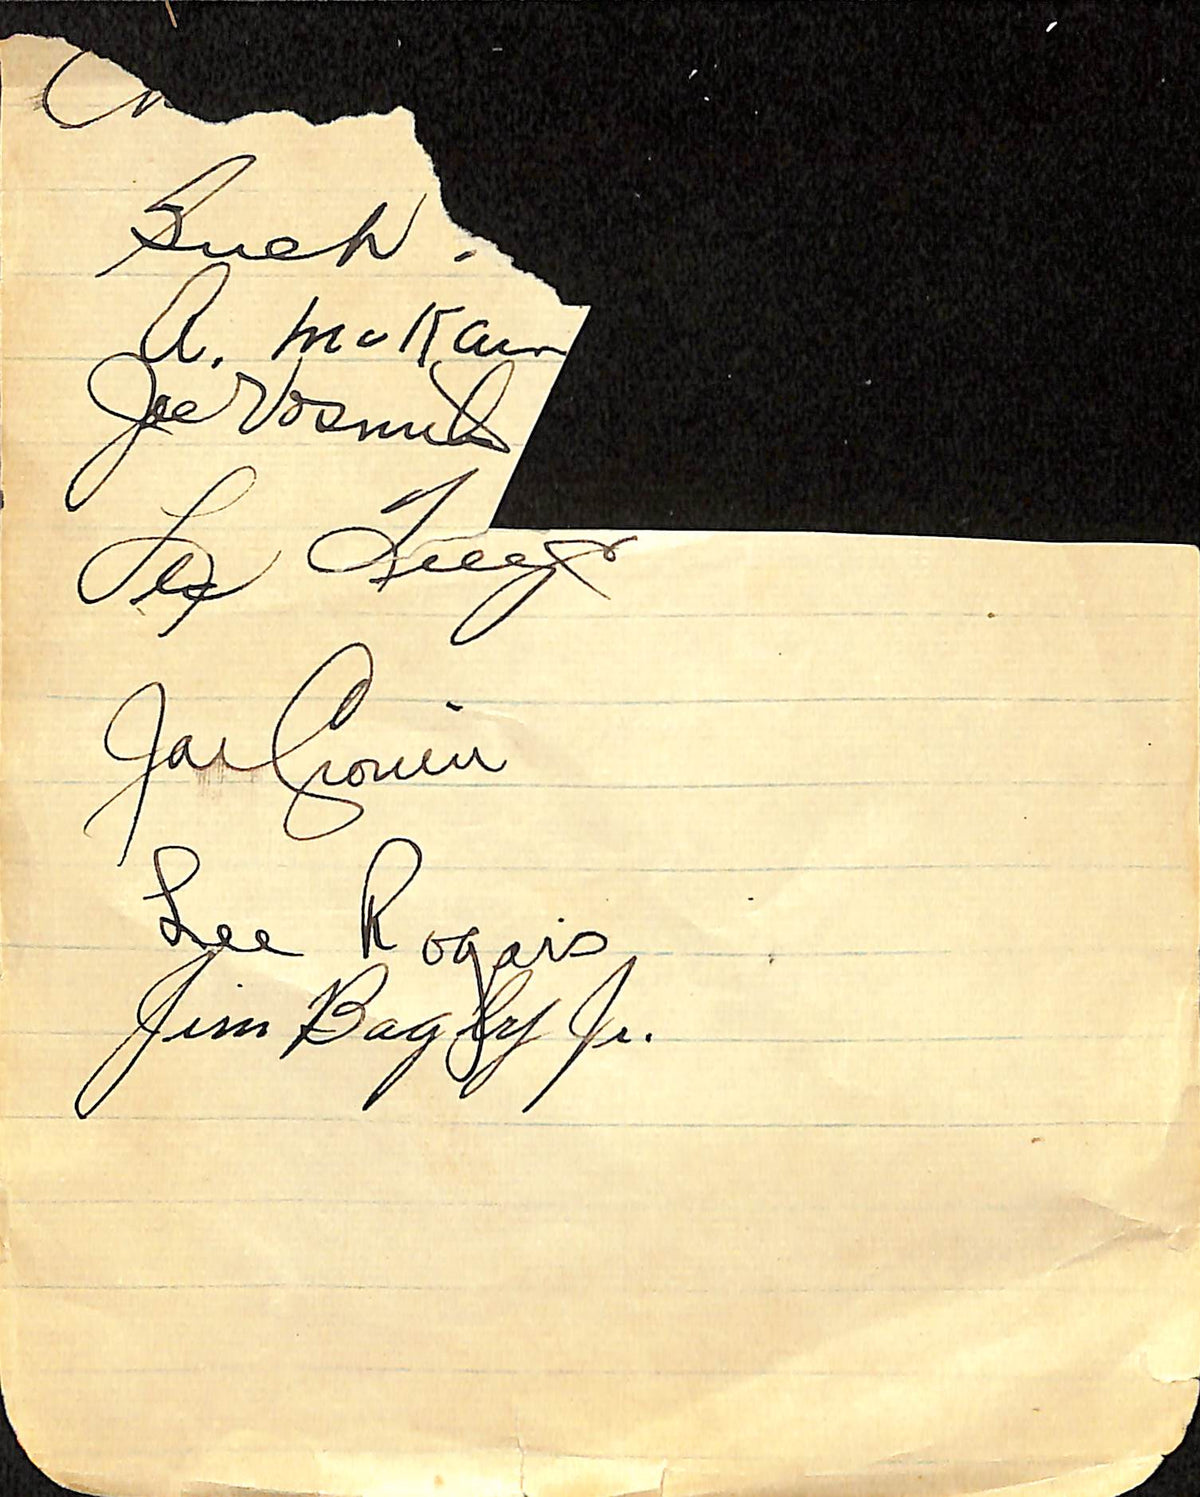 Buck
A. McKain
Joe Vosmik
Joe Cronin
Lee Rogers
Jim Bagby Jr.